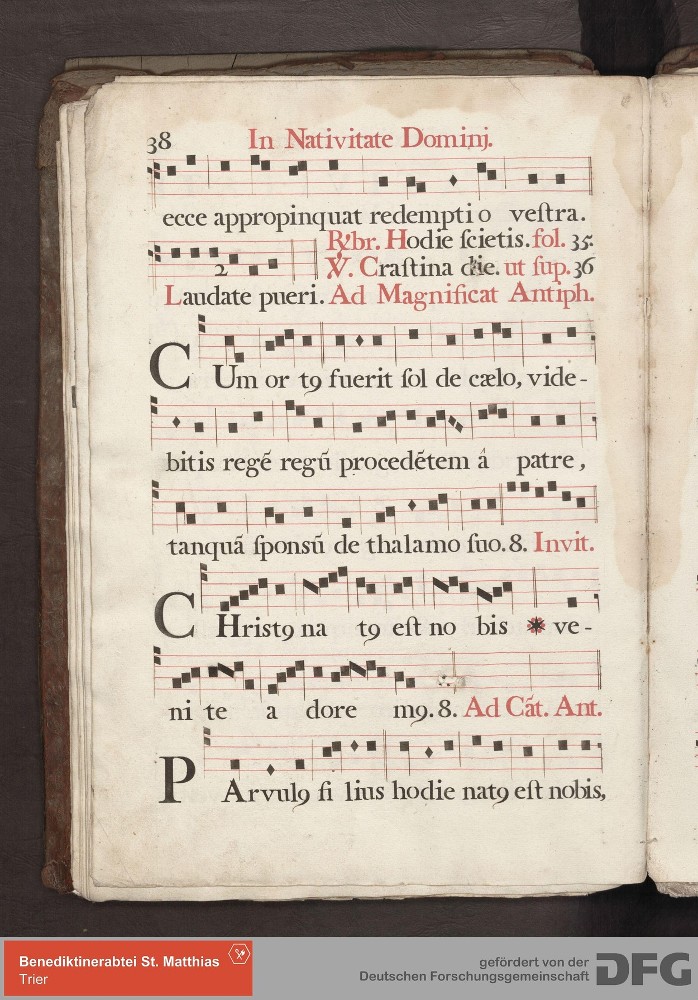 38 In Nativitate Dominj.
ecce appropinquat redempti o veſtra.
R/br. Hodie ſcietis. fol. 35.
2 V. Craſtina die. ut ſup. 36
Laudate pueri. Ad Magnificat Antiph.
CUm or tꝰ fuerit ſol de cælo, vide-
bitis regē regū procedētem â patre,
tanquā ſponsū de thalamo ſuo. 8. Invit.
CHristꝰ na tꝰ eſt no bis * ve-
ni te a dore mꝰ. 8. Ad Cāt. Ant.
PArvulꝰ fi lius hodie natꝰ eſt nobis,
Benediktinerabtei St. Matthias
Trier
gefördert von der
Deutschen Forschungsgemeinschaft
DFG